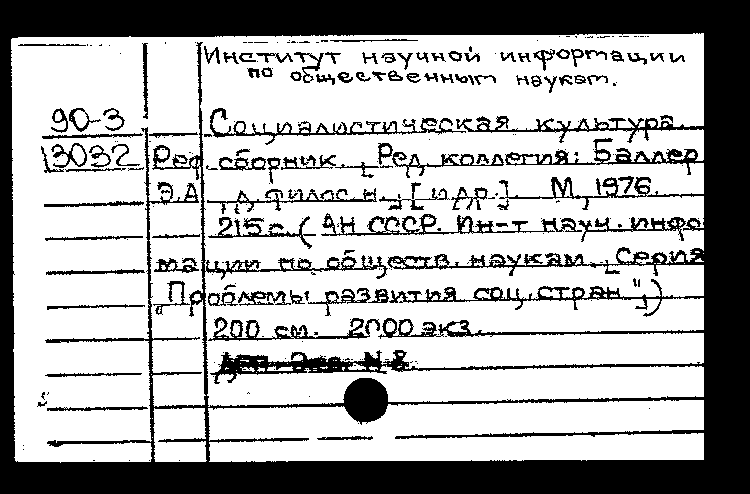 Институт научной информации
по общественным наукам.
90-3 Социалистическая культура.
13032 Реф. сборник. [Ред. коллегия: Баллер
Э.А., д. филос. н. ; [и др.]. М., 1976.
215 с. (АН СССР. Ин-т науч. инфор
мации по обществ. наукам. Серия
„Проблемы развития соц. стран";)
200 см. 2000 экз.